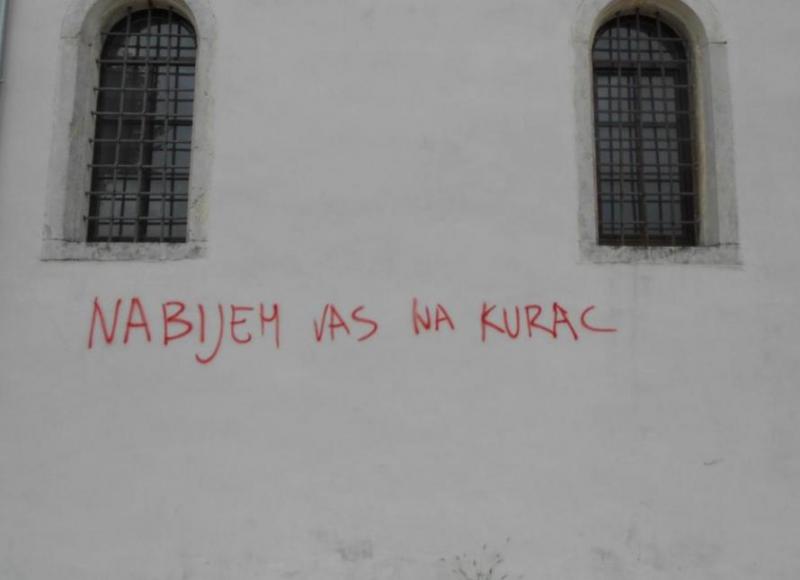 NABIJEM VAS NA KURAC